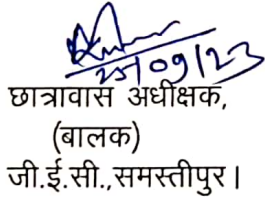 25/09/23
छात्रावास अधीक्षक,
(बालक)
जी.ई.सी.,समस्तीपुर।